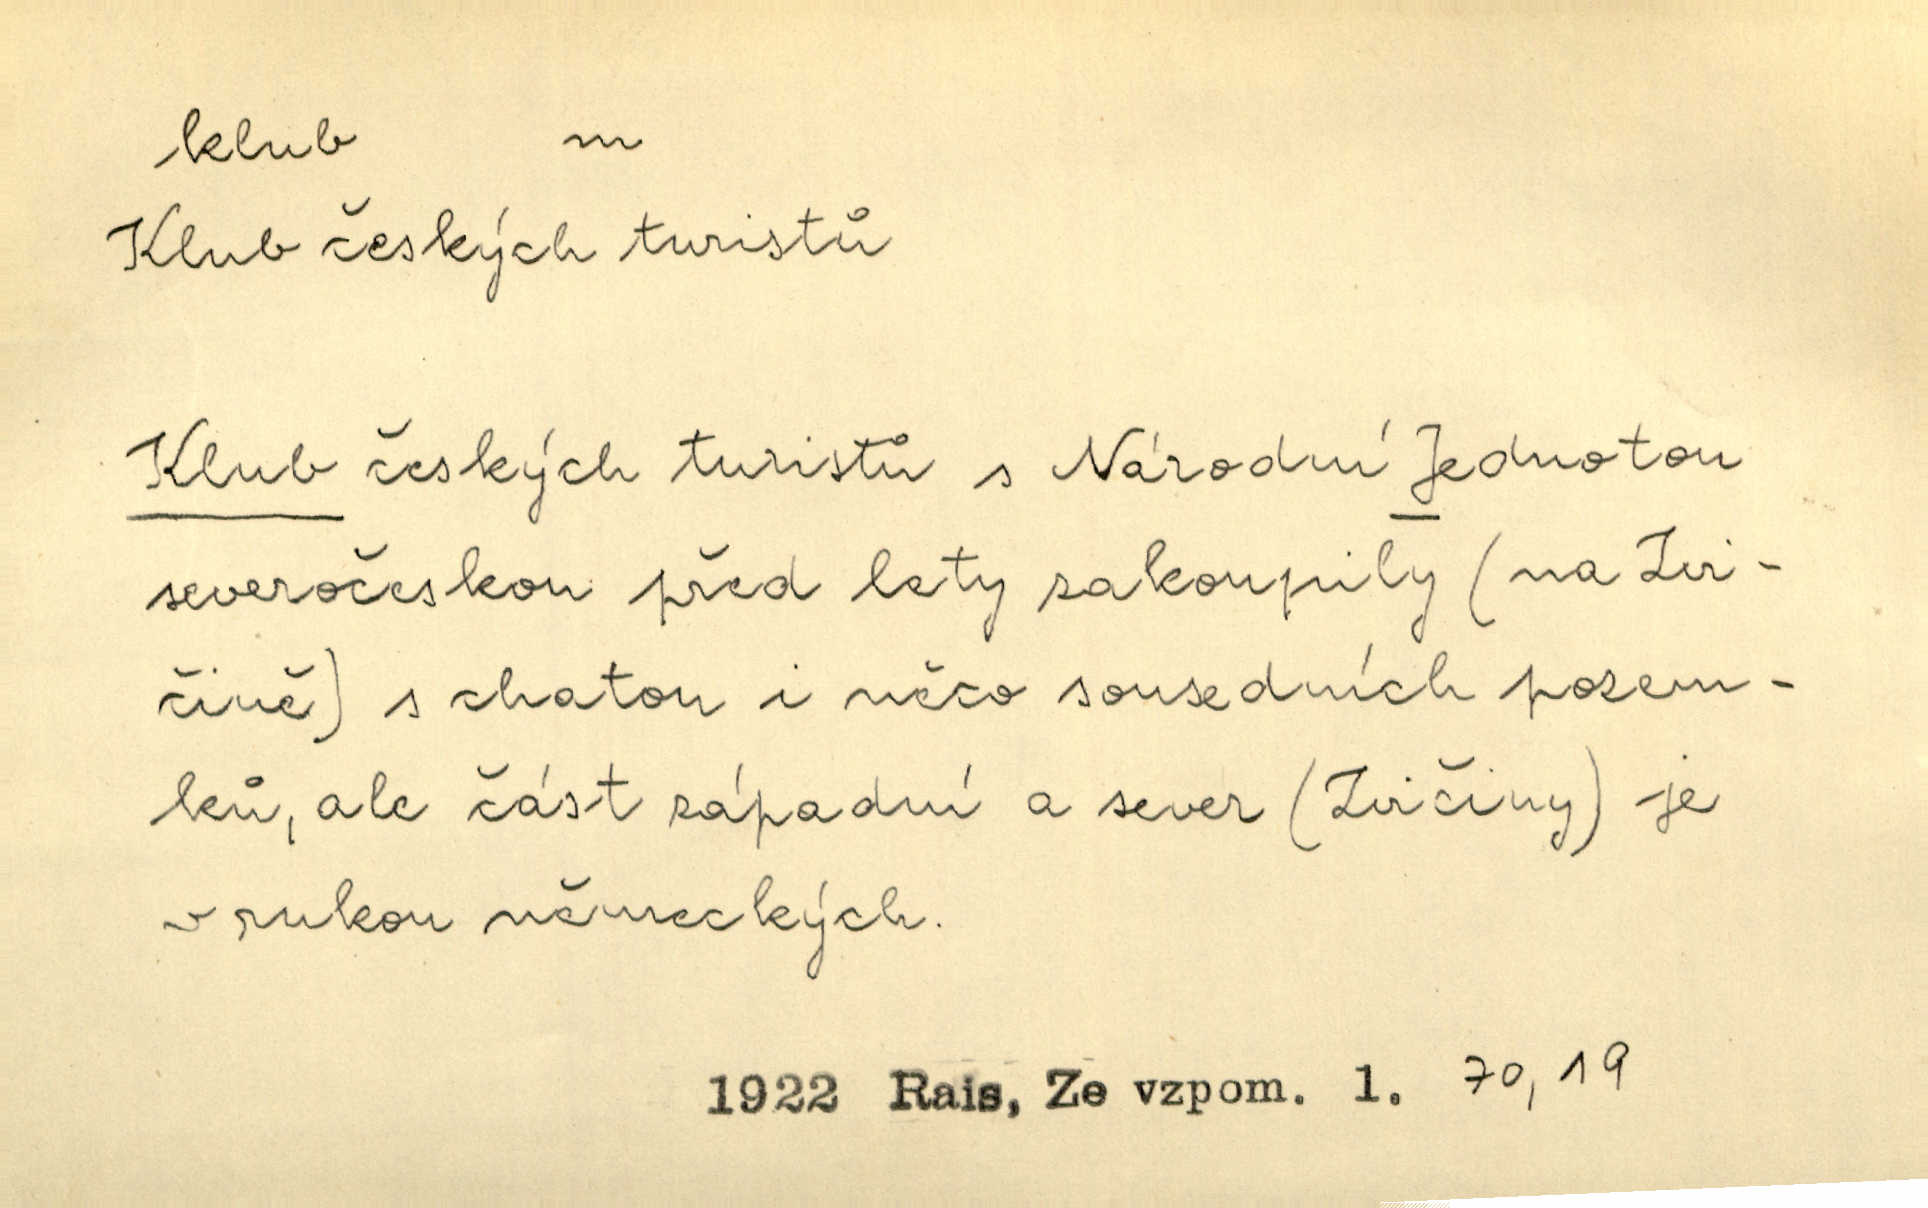 klub m
Klub českých turistů
Klub českých turistů s Národní Jednotou
severočeskou před lety zakoupily (na Zvi-
čině) s chatou i něco sousedních pozem-
ků, ale část západní a sever (Zvičiny) je
v rukou německých.
1922 Rais, Ze vzpom. 1. 70,19